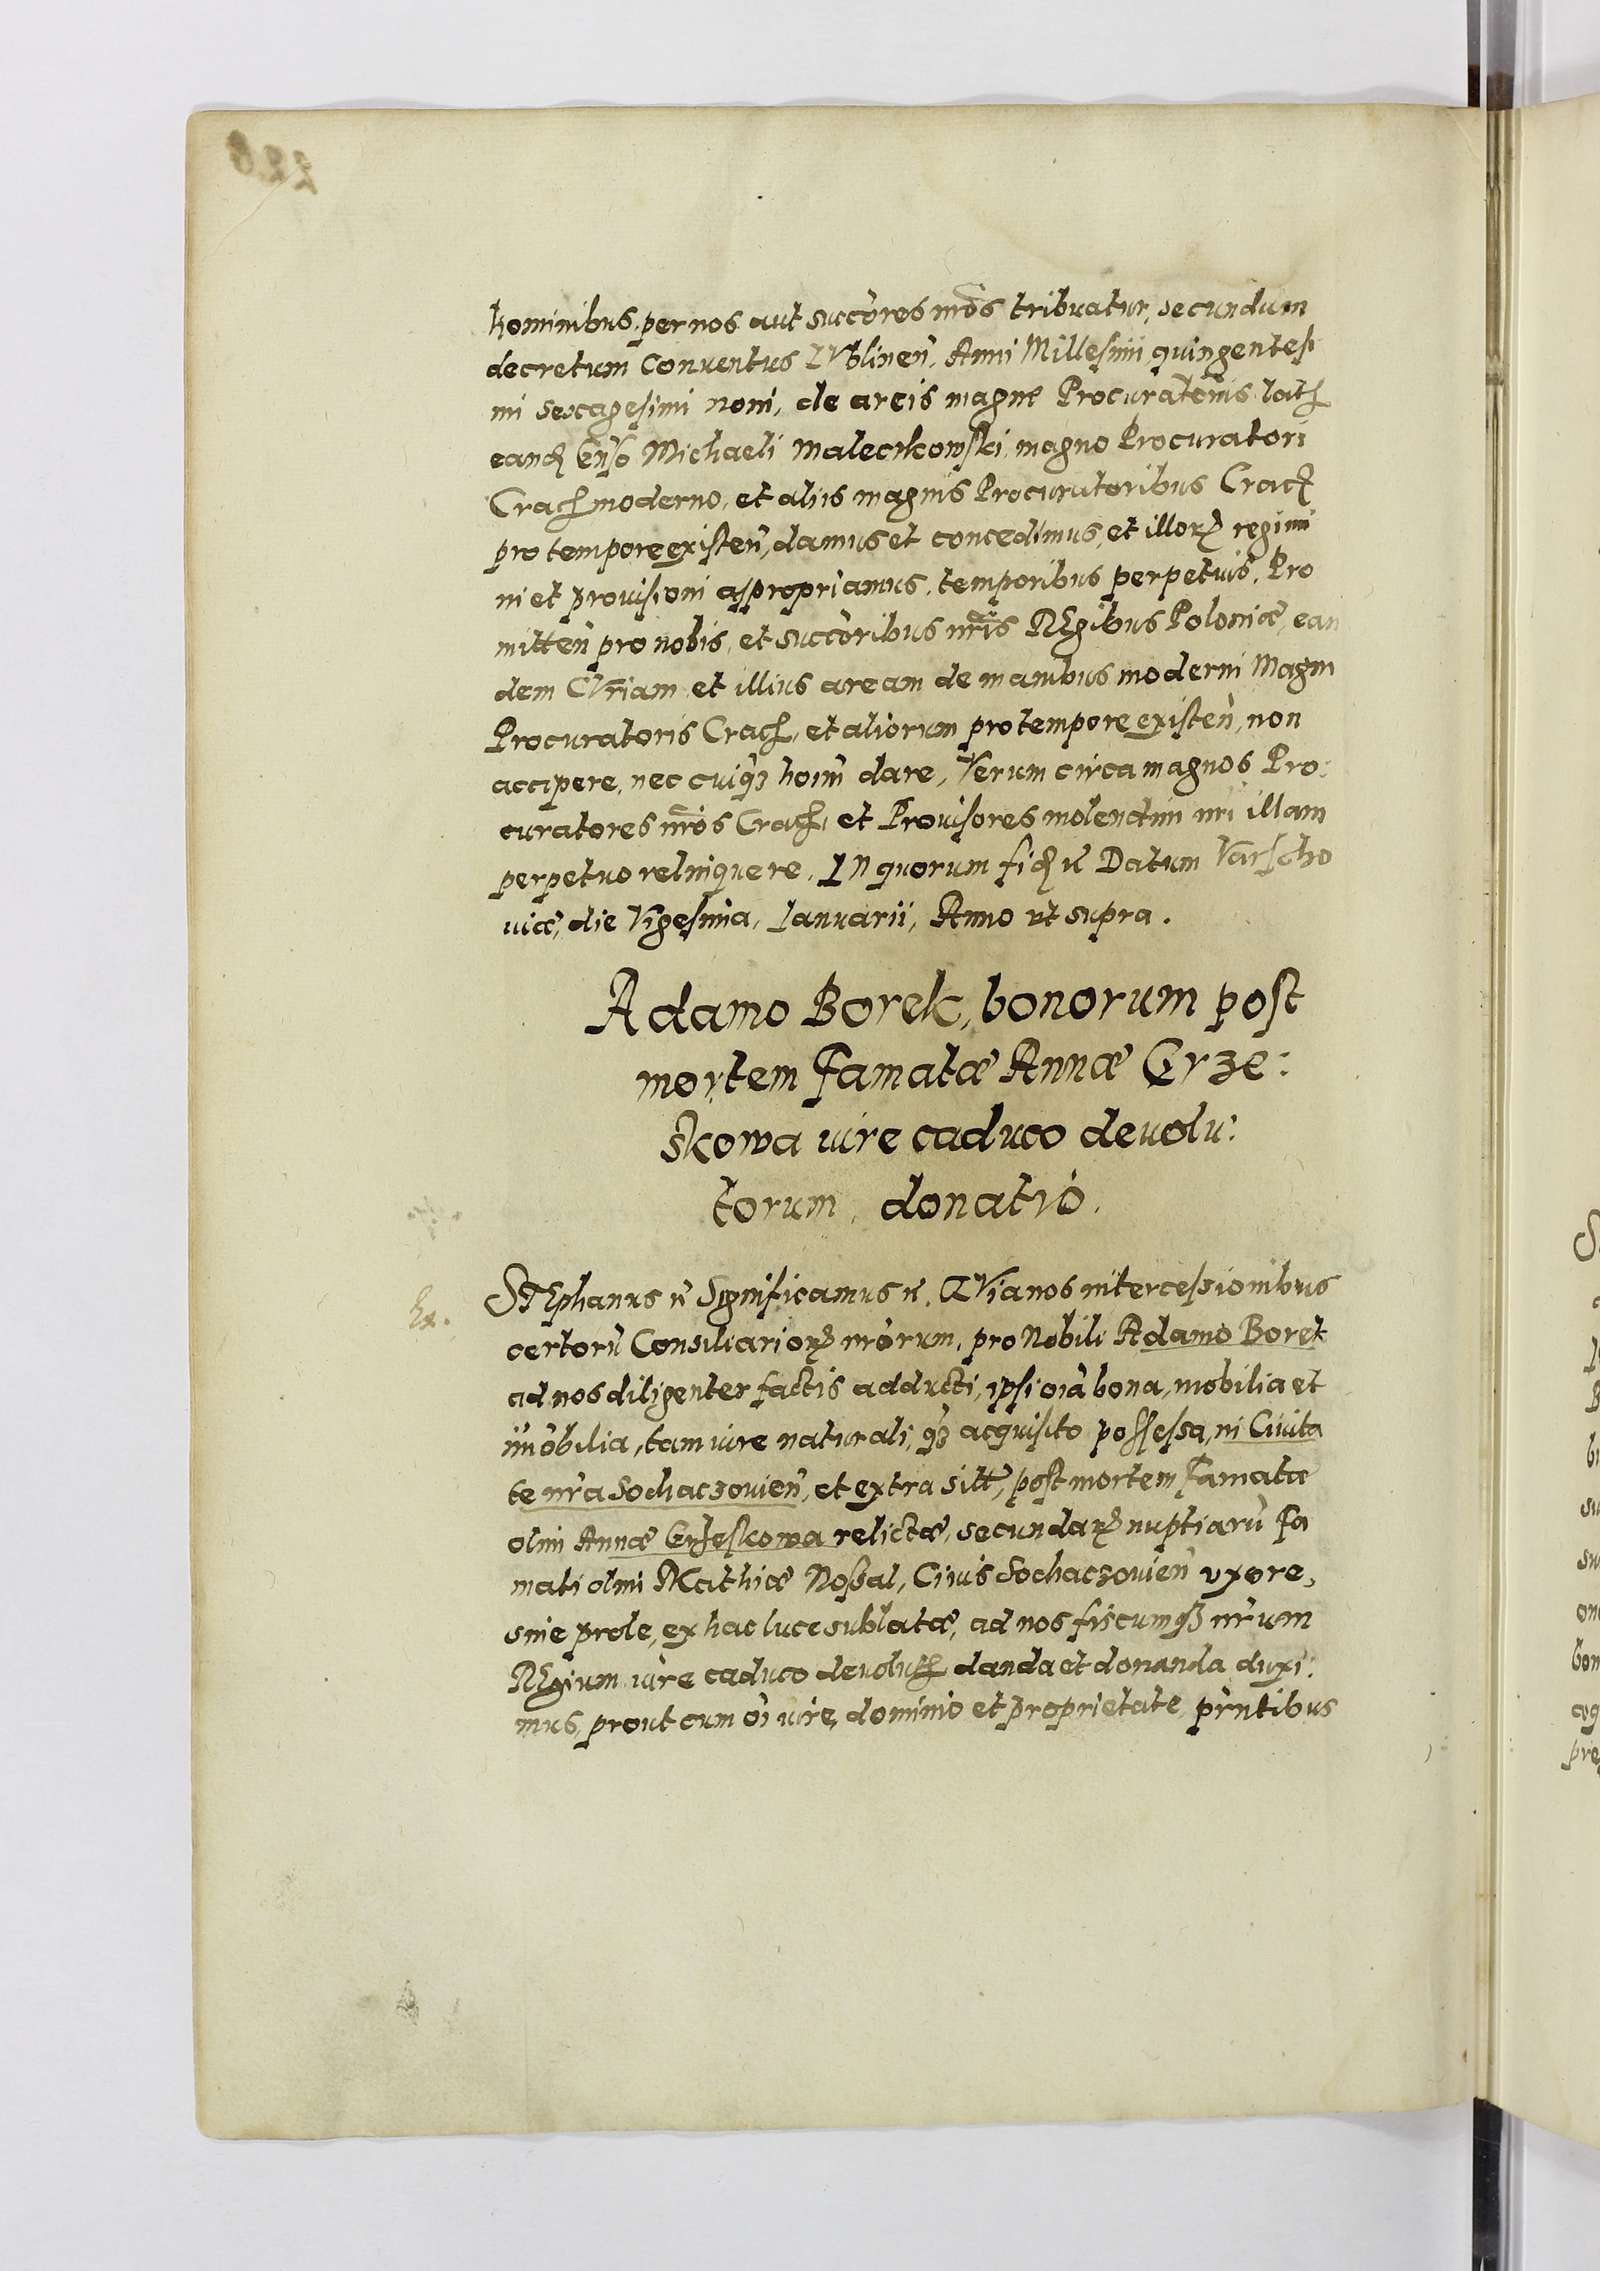 hominibus, per nos aut succores nros tribuatur, secundum
decretum Conuentus LVblinen, Anni Millesimi quingentesi
mi Sexagesimi noni, de areis magni Procuratoris lat
eand Gnso Michaeli Maleczkowski, magno Procuratori
Crac moderno, et alijs magnis Procuratoribus Crac
pro tempore existen, damus et concedimus, et illorꝝ regimi
ni et prouisioni appropriamus, temporibus perpetuis. Pro
mitten pro nobis, et succoribus nris REgibus Poloniæ, ean
dem CVriam et illius aream de manibus moderni Magni
Procuratoris Crac, et aliorum pro tempore existen, non
accipere, nec cuiqꝫ hoim dare, Verum circa magnos Pro:
curatores nros Crac, et Prouisores molendini nri illam
perpetuo relinquere. IN quorum fid etc Datum Varscho
uiæ, die Vigesima, Ianuarii, Anno ut supra.
Adamo Borek, bonorum post
mortem Famatæ Annæ Grze:
skowa iure caduco deuolu:
torum, donatio.
STEphanus etc Significamus etc. QVia nos intercessionibus
certorũ Consiliariorꝝ nrorum, pro Nobili Adamo Borek
ad nos diligenter factis adducti, ipsi oia bona, mobilia et
imobilia, tam iure naturali, qꝫ acquisito possessa, in Ciuita
te nra Sochaczouien, et extra sitt, post mortem Famatæ
olim Annæ Grzeskowa relictæ, secundarꝝ nuptiarũ Fa
mati olim Mathiæ Noßal, Ciuis Sochaczouien uxore,
sine prole, ex hac luce sublatæ, ad nos fiscumqꝫ nrum
REgium iure caduco deuolut danda et donanda duxi:
mus, prout cum oi iure, dominio et proprietate, prntibus